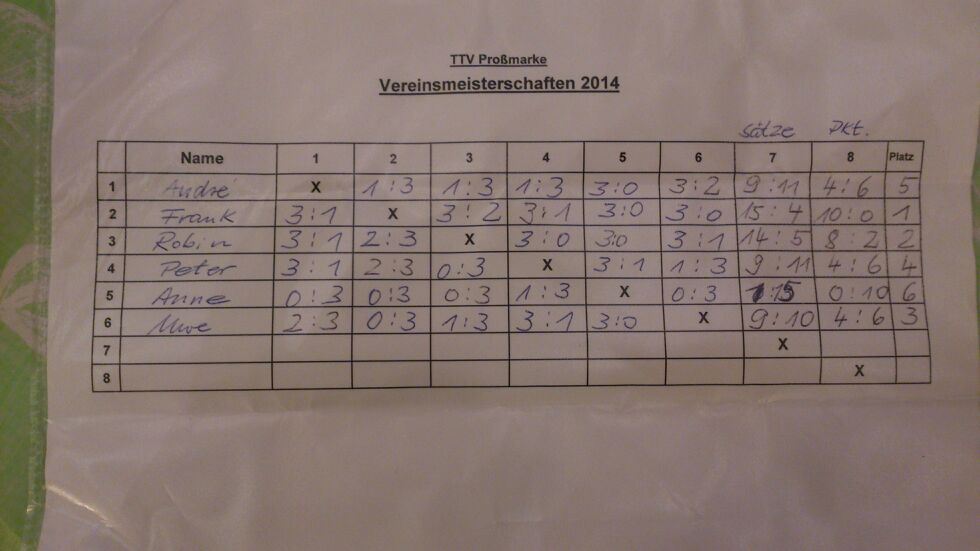 TTV Proßmarke
Vereinsmeisterschaften 2014
Sätze Pkt.
Name 1 2 3 4 5 6 7 8 Platz
1 André X 1:3 1:3 1:3 3:0 3:2 9:11 4:6 5
2 Frank 3:1 X 3:2 3:1 3:0 3:0 15:4 10:0 1
3 Robin 3:1 2:3 X 3:0 3:0 3:1 14:5 8:2 2
4 Peter 3:1 2:3 0:3 X 3:1 1:3 9:11 4:6 4
5 Anne 0:3 0:3 0:3 1:3 X 0:3 1:15 0:10 6
6 Uwe 2:3 0:3 1:3 3:1 3:0 X 9:10 4:6 3
7 X
8 X